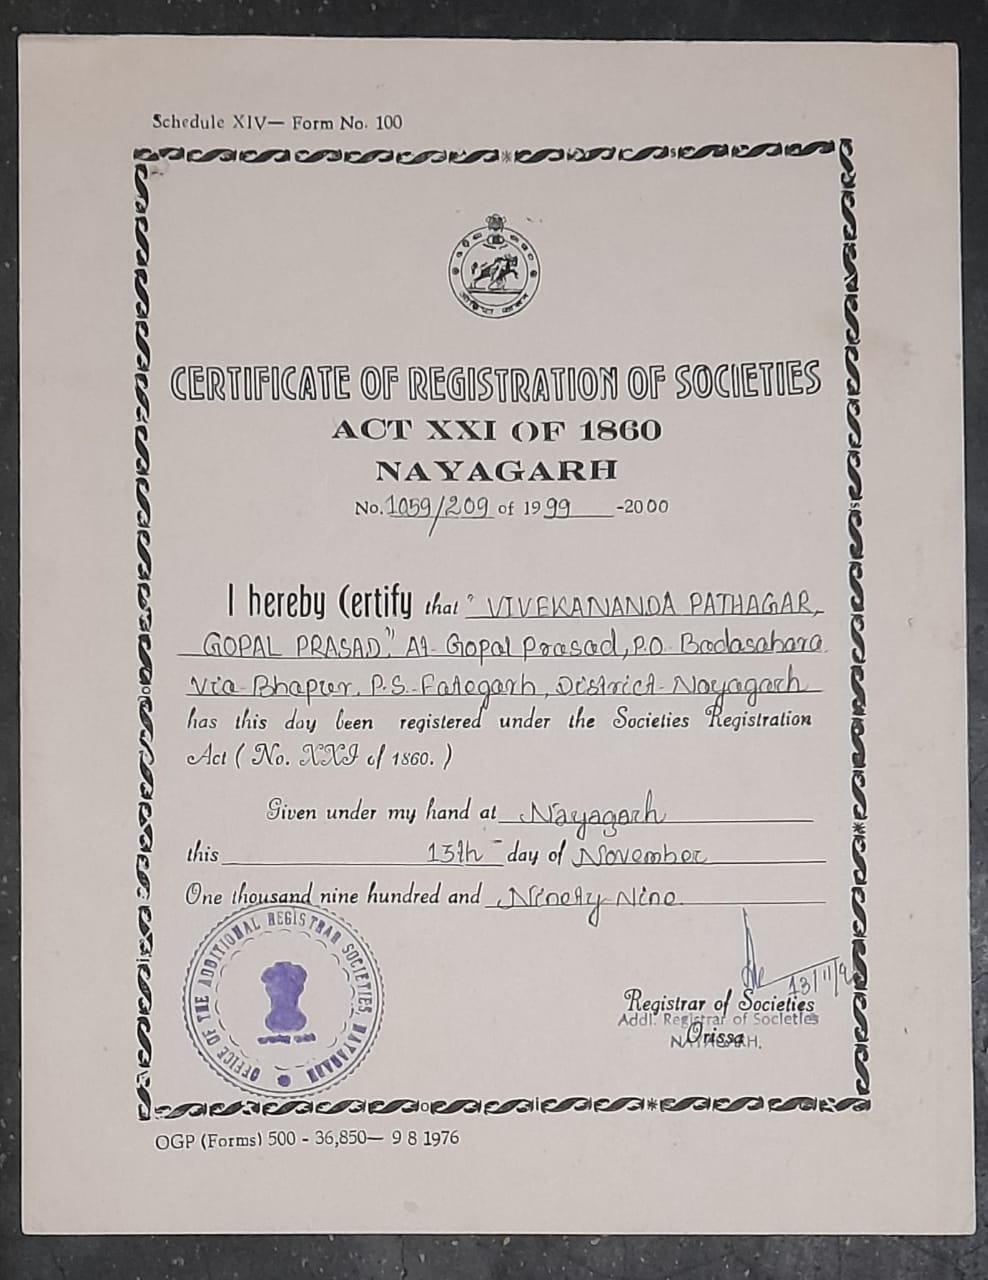 Schedule XIV— Form No. 100
CERTIFICATE OF REGISTRATION OF SOCIETIES
ACT XXI OF 1860
NAYAGARH
No. 1059/209 of 1999 -2000
I hereby Certify that "VIVEKANANDA PATHAGAR,
GOPAL PRASAD," At- Gopal Prasad, P.O- Badasahara
Via- Bhapur, P.S.- Fategarh, District- Nayagarh
has this day been registered under the Societies Registration
Act ( No. XXI of 1860. )
Given under my hand at Nayagarh
this 13th day of November
One thousand nine hundred and Ninety Nine
OFFICE OF THE ADDITIONAL REGISTRAR SOCIETIES, NAYAGARH
13/11/9
Registrar of Societies
Addl. Registrar of Societies
Orissa
NAYAGARH.
OGP (Forms) 500 - 36,850— 9 8 1976